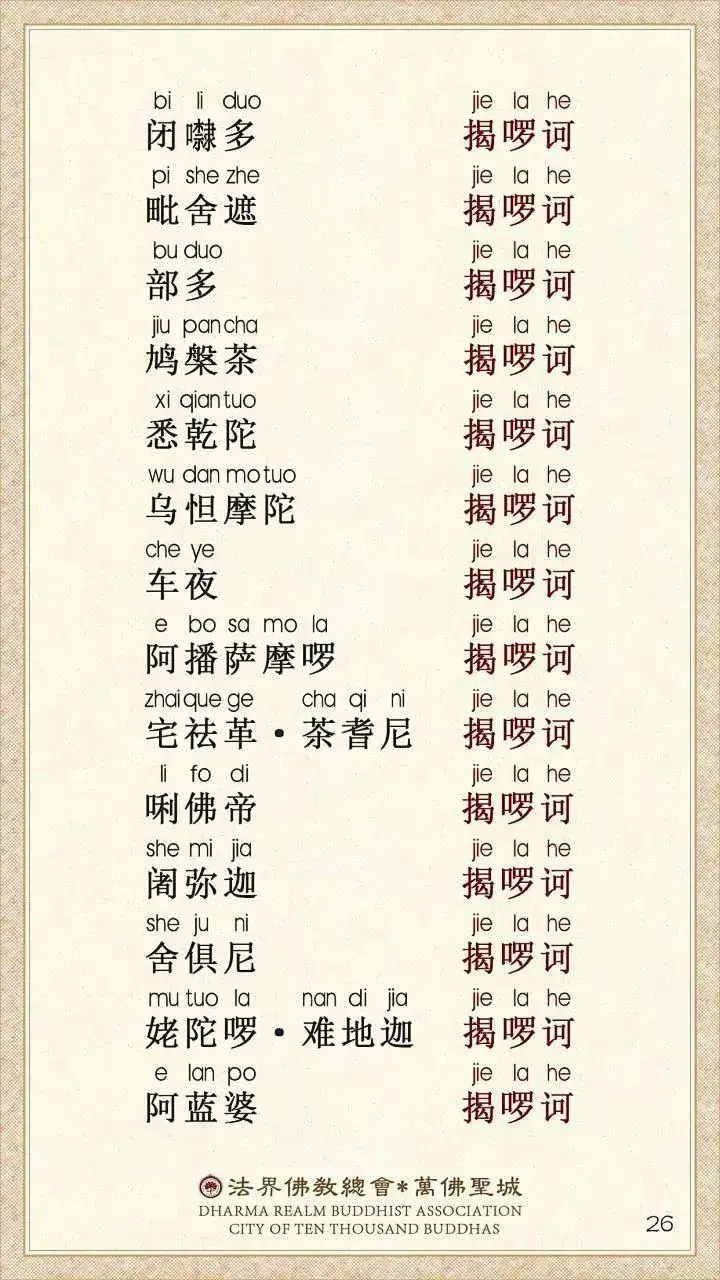 bi li duo jie la he
闭㘑多 揭啰诃
pi she zhe jie la he
毗舍遮 揭啰诃
bu duo jie la he
部多 揭啰诃
jiu pan cha jie la he
鸠槃茶 揭啰诃
xi qian tuo jie la he
悉乾陀 揭啰诃
wu dan mo tuo jie la he
乌怛摩陀 揭啰诃
che ye jie la he
车夜 揭啰诃
e bo sa mo la jie la he
阿播萨摩啰 揭啰诃
zhai que ge cha qi ni jie la he
宅祛革·茶耆尼 揭啰诃
li fo di jie la he
唎佛帝 揭啰诃
she mi jia jie la he
阇弥迦 揭啰诃
she ju ni jie la he
舍俱尼 揭啰诃
mu tuo la nan di jia jie la he
姥陀啰·难地迦 揭啰诃
e lan po jie la he
阿蓝婆 揭啰诃
法界佛教總會*萬佛聖城
DHARMA REALM BUDDHIST ASSOCIATION
CITY OF TEN THOUSAND BUDDHAS
26